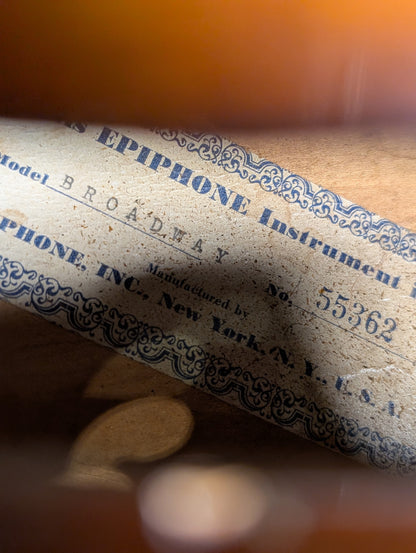 is EPIPHONE Instrument
Model BROADWAY No. 55362
Manufactured by
PHONE, INC., New York, N. Y., U.S.A